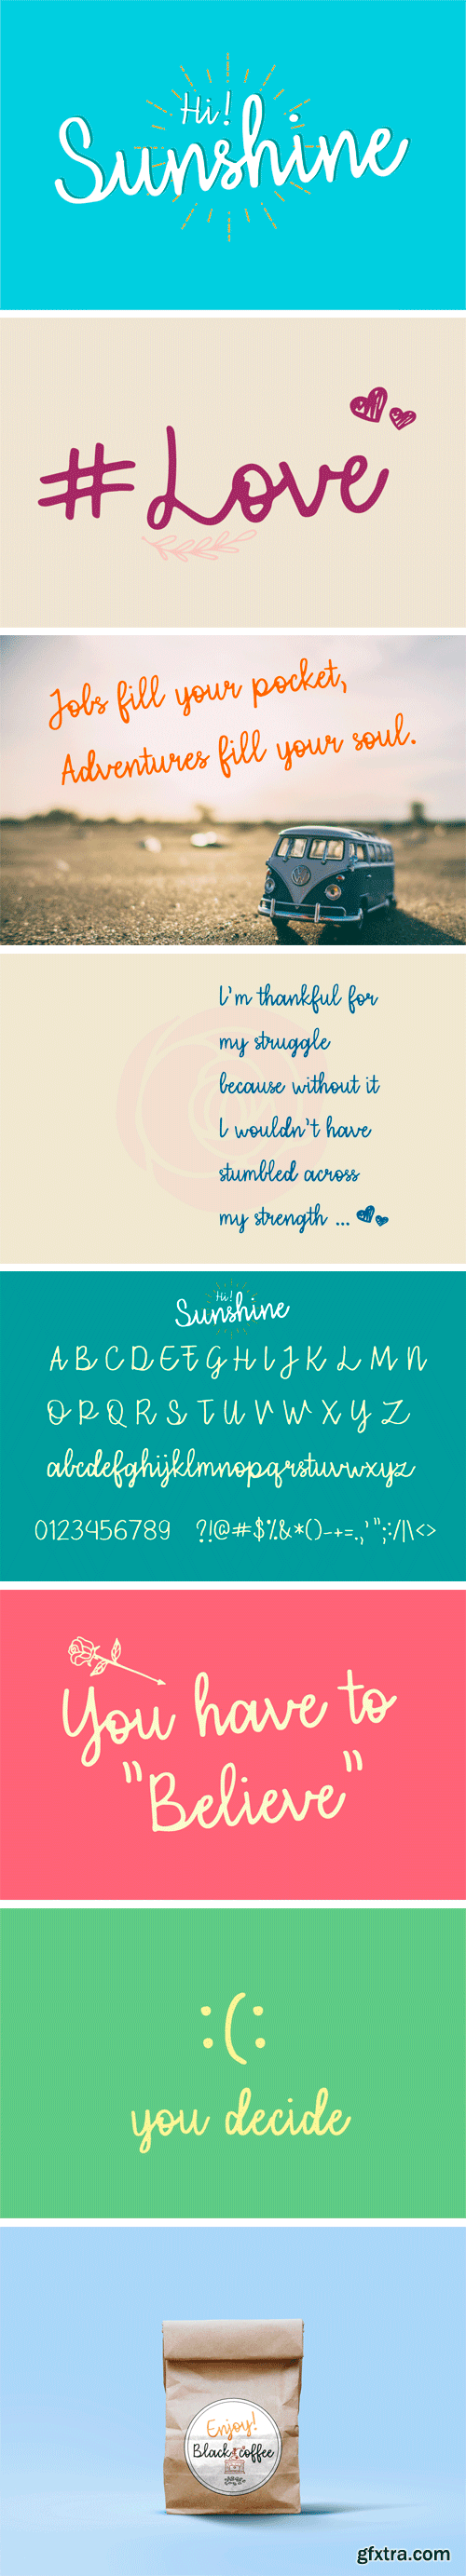 Hi!
Sunshine
#Love
Jobs fill your pocket,
Adventures fill your soul.
I'm thankful for
my struggle
because without it
I wouldn't have
stumbled across
my strength ...
Hi!
Sunshine
A B C D E F G H I J K L M N
O P Q R S T U V W X Y Z
abcdefghijklmnopqrstuvwxyz
0123456789 ?!@#$%&*()-+=.,'";:/|\<>
You have to
"Believe"
:(:
you decide
Enjoy!
Black coffee
gfxtra.com